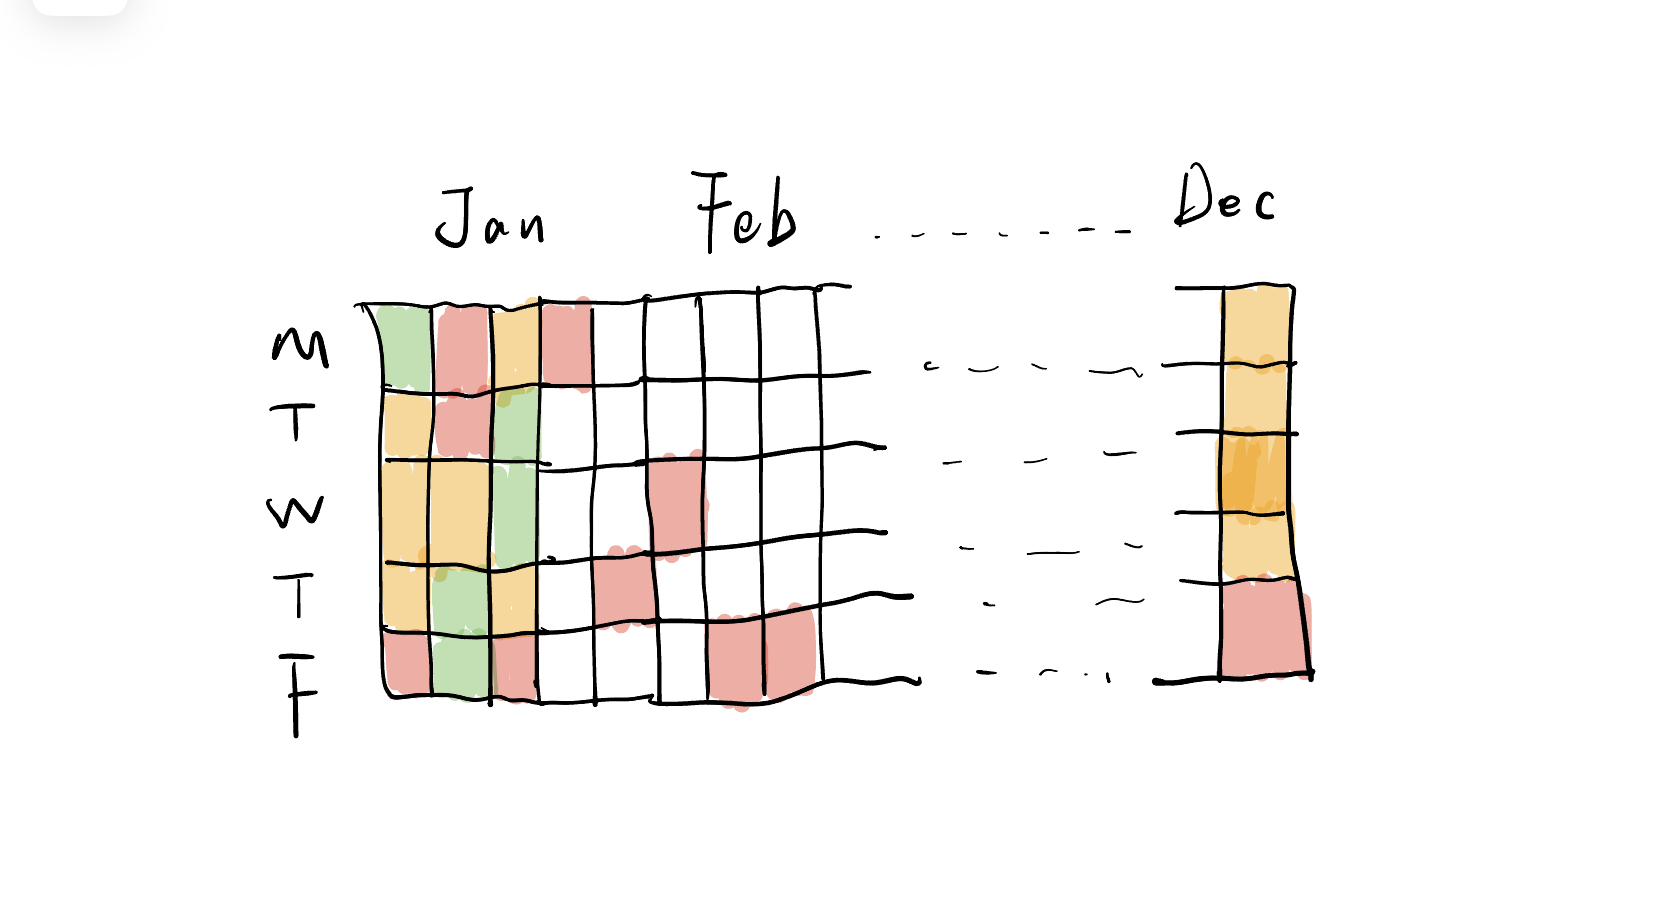 Jan Feb ....... Dec
M
T
W
T
F